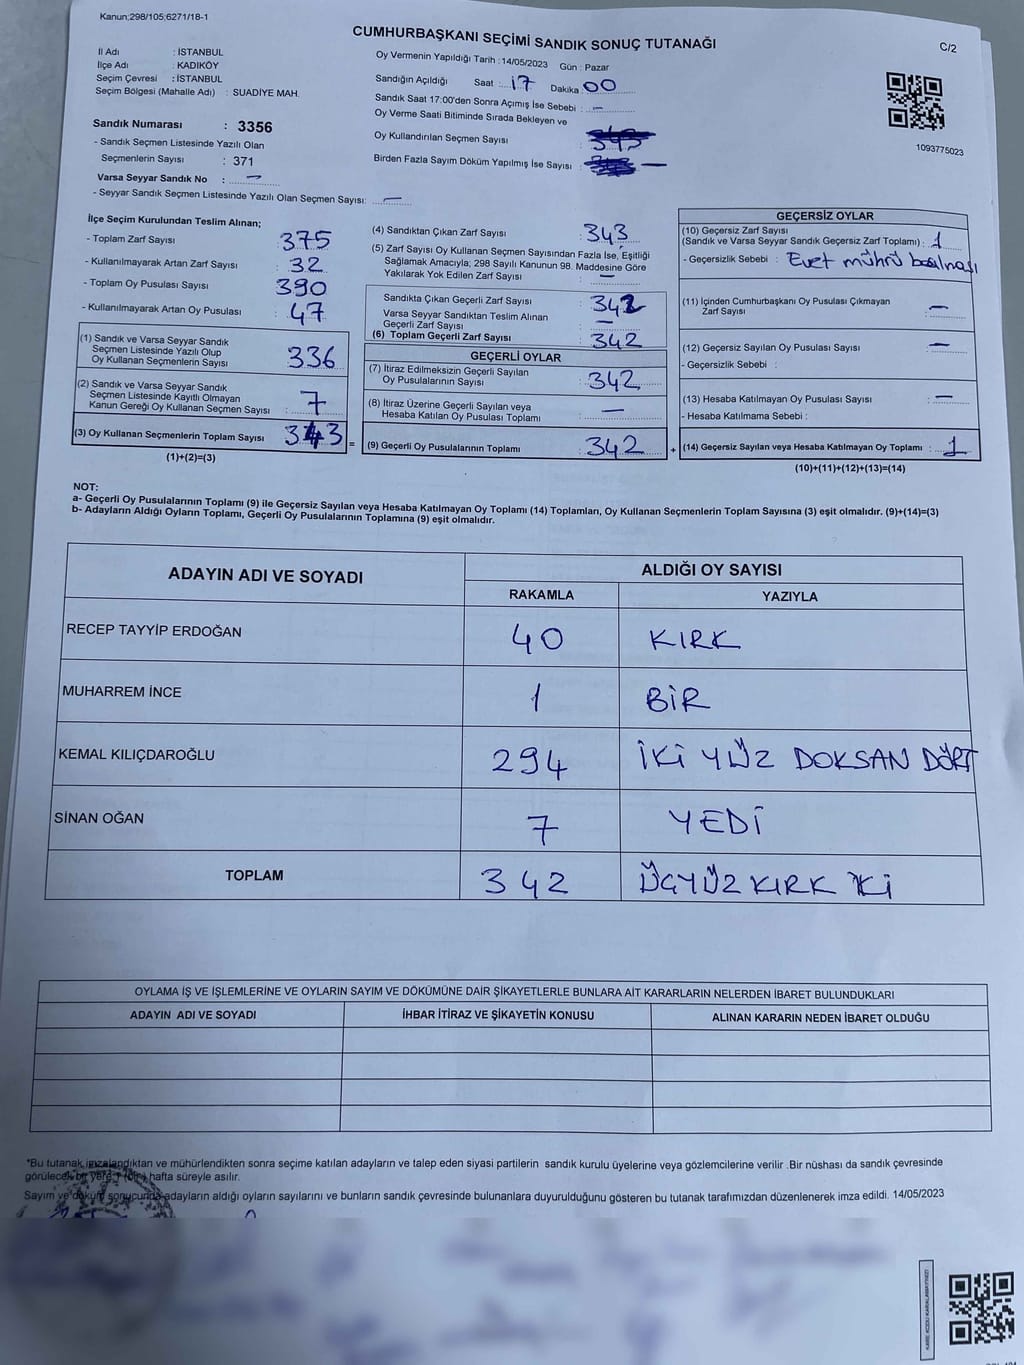 Kanun;298/105;6271/18-1
CUMHURBAŞKANI SEÇİMİ SANDIK SONUÇ TUTANAĞI
C/2
İl Adı : İSTANBUL
İlçe Adı : KADIKÖY
Seçim Çevresi : İSTANBUL
Seçim Bölgesi (Mahalle Adı) : SUADİYE MAH.
Oy Vermenin Yapıldığı Tarih : 14/05/2023 Gün : Pazar
Sandığın Açıldığı Saat : 17 Dakika : 00
Sandık Saat 17:00'den Sonra Açımış İse Sebebi : –
Oy Verme Saati Bitiminde Sırada Bekleyen ve
Oy Kullandırılan Seçmen Sayısı :
Birden Fazla Sayım Döküm Yapılmış İse Sayısı : –
1093775023
Sandık Numarası : 3356
- Sandık Seçmen Listesinde Yazılı Olan
Seçmenlerin Sayısı : 371
Varsa Seyyar Sandık No : –
- Seyyar Sandık Seçmen Listesinde Yazılı Olan Seçmen Sayısı: –
İlçe Seçim Kurulundan Teslim Alınan;
- Toplam Zarf Sayısı : 375
- Kullanılmayarak Artan Zarf Sayısı : 32
- Toplam Oy Pusulası Sayısı : 390
- Kullanılmayarak Artan Oy Pusulası : 47
(1) Sandık ve Varsa Seyyar Sandık
Seçmen Listesinde Yazılı Olup
Oy Kullanan Seçmenlerin Sayısı : 336
(2) Sandık ve Varsa Seyyar Sandık
Seçmen Listelerinde Kayıtlı Olmayan
Kanun Gereği Oy Kullanan Seçmen Sayısı : 7
(3) Oy Kullanan Seçmenlerin Toplam Sayısı : 343 =
(1)+(2)=(3)
(4) Sandıktan Çıkan Zarf Sayısı : 343
(5) Zarf Sayısı Oy Kullanan Seçmen Sayısından Fazla İse, Eşitliği
Sağlamak Amacıyla; 298 Sayılı Kanunun 98. Maddesine Göre
Yakılarak Yok Edilen Zarf Sayısı : –
Sandıkta Çıkan Geçerli Zarf Sayısı : 342
Varsa Seyyar Sandıktan Teslim Alınan
Geçerli Zarf Sayısı : –
(6) Toplam Geçerli Zarf Sayısı : 342
GEÇERLİ OYLAR
(7) İtiraz Edilmeksizin Geçerli Sayılan
Oy Pusulalarının Sayısı : 342
(8) İtiraz Üzerine Geçerli Sayılan veya
Hesaba Katılan Oy Pusulası Toplamı : –
(9) Geçerli Oy Pusulalarının Toplamı : 342 +
GEÇERSİZ OYLAR
(10) Geçersiz Zarf Sayısı
(Sandık ve Varsa Seyyar Sandık Geçersiz Zarf Toplamı) : 1
- Geçersizlik Sebebi : Evet mührü basılması
(11) İçinden Cumhurbaşkanı Oy Pusulası Çıkmayan
Zarf Sayısı : –
(12) Geçersiz Sayılan Oy Pusulası Sayısı : –
- Geçersizlik Sebebi :
(13) Hesaba Katılmayan Oy Pusulası Sayısı : –
- Hesaba Katılmama Sebebi :
(14) Geçersiz Sayılan veya Hesaba Katılmayan Oy Toplamı : 1
(10)+(11)+(12)+(13)=(14)
NOT:
a- Geçerli Oy Pusulalarının Toplamı (9) ile Geçersiz Sayılan veya Hesaba Katılmayan Oy Toplamı (14) Toplamları, Oy Kullanan Seçmenlerin Toplam Sayısına (3) eşit olmalıdır. (9)+(14)=(3)
b- Adayların Aldığı Oyların Toplamı, Geçerli Oy Pusulalarının Toplamına (9) eşit olmalıdır.
ADAYIN ADI VE SOYADI ALDIĞI OY SAYISI
RAKAMLA YAZIYLA
RECEP TAYYİP ERDOĞAN 40 KIRK
MUHARREM İNCE 1 BİR
KEMAL KILIÇDAROĞLU 294 İKİ YÜZ DOKSAN DÖRT
SİNAN OĞAN 7 YEDİ
TOPLAM 342 ÜÇYÜZ KIRK İKİ
OYLAMA İŞ VE İŞLEMLERİNE VE OYLARIN SAYIM VE DÖKÜMÜNE DAİR ŞİKAYETLERLE BUNLARA AİT KARARLARIN NELERDEN İBARET BULUNDUKLARI
ADAYIN ADI VE SOYADI İHBAR İTİRAZ VE ŞİKAYETİN KONUSU ALINAN KARARIN NEDEN İBARET OLDUĞU
*Bu tutanak imzalandıktan ve mühürlendikten sonra seçime katılan adayların ve talep eden siyasi partilerin sandık kurulu üyelerine veya gözlemcilerine verilir .Bir nüshası da sandık çevresinde
görülecek bir yere 1 (bir) hafta süreyle asılır.
Sayım ve döküm sonucunda adayların aldığı oyların sayılarını ve bunların sandık çevresinde bulunanlara duyurulduğunu gösteren bu tutanak tarafımızdan düzenlenerek imza edildi. 14/05/2023